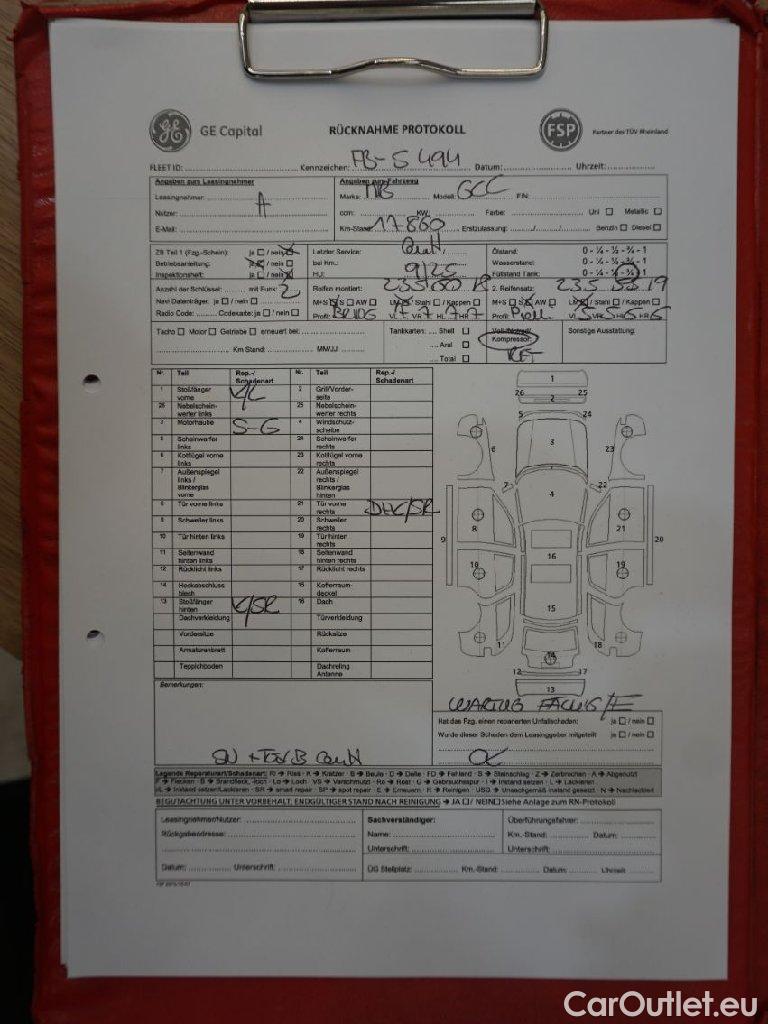 GE Capital RÜCKNAHME PROTOKOLL FSP Partner des TÜV Rheinland
FLEET ID: Kennzeichen: Datum: Uhrzeit:
Angaben zum Leasingnehmer Angaben zum Fahrzeug
Leasingnehmer: A Marke: MB Modell: GCC FIN:
Nutzer: ccm: KW: Farbe: Uni Metallic
E-Mail: Km-Stand: 17860 Erstzulassung: Benzin Diesel
ZB Teil 1 (Fzg.-Schein): ja / nein Letzter Service: Ölstand: 0 - ¼ - ½ - ¾ - 1
Betriebsanleitung: ja / nein bei Km.: Wasserstand: 0 - ¼ - ½ - ¾ - 1
Inspektionsheft: ja / nein HU: 9/25 Füllstand Tank: 0 - ¼ - ½ - ¾ - 1
Anzahl der Schlüssel: mit Funk: 2 Reifen montiert: 235 60 18 2. Reifensatz: 235 55 19
Navi Datenträger: ja / nein M+S S AW LM / Stahl / Kappen M+S S AW LM / Stahl / Kappen
Radio Code: Codekarte: ja / nein Profil: VL 7 VR 7 HL 7 HR 7 Profil: VL 5 VR 5 HL 5 HR 5
Tacho Motor Getriebe erneuert bei: Tankkarten: Shell Kompressor: Sonstige Ausstattung:
Km Stand: MM/JJ Aral
Total
Nr. Teil Rep.-/Schadenart Nr. Teil Rep.-/Schadenart
1 Stoßfänger vorne 2 Grill/Vorderseite
26 Nebelscheinwerfer links 25 Nebelscheinwerfer rechts
3 Motorhaube S-G 4 Windschutzscheibe
5 Scheinwerfer links 24 Scheinwerfer rechts
6 Kotflügel vorne links 23 Kotflügel vorne rechts
7 Außenspiegel links / Blinkerglas vorne 22 Außenspiegel rechts / Blinkerglas hinten
8 Tür vorne links 21 Tür vorne rechts
9 Schweller links 20 Schweller rechts
10 Tür hinten links 19 Tür hinten rechts
11 Seitenwand hinten links 18 Seitenwand hinten rechts
12 Rücklicht links 17 Rücklicht rechts
14 Heckabschlussblech 15 Kofferraumdeckel
13 Stoßfänger hinten K/SR 16 Dach
Dachverkleidung Türverkleidung
Vordersitze Rücksitze
Armaturenbrett Kofferraum
Teppichboden Dachreling Antenne
1
26 25
2
5 24
3
6 23
7 22
4
8 21
9 20
16
10 19
15
18
14
12 17
13
Bemerkungen:
Hat das Fzg. einen reparierten Unfallschaden: ja / nein
Wurde dieser Schaden dem Leasinggeber mitgeteilt ja / nein
OK
Legende Reparaturart/Schadenart: RI → Riss · K → Kratzer · B → Beule · D → Delle · FD → Fehlend · S → Steinschlag · Z → Zerbrochen · A → Abgenutzt
BEGUTACHTUNG UNTER VORBEHALT, ENDGÜLTIGER STAND NACH REINIGUNG → JA / NEIN Siehe Anlage zum RN-Protokoll
Leasingnehmer/Nutzer: Sachverständiger: Überführungsfahrer:
Rückgabeadresse: Name: Km.-Stand: Datum:
Unterschrift: Unterschrift:
Datum: Unterschrift: ÜG Stellplatz: Km.-Stand: Datum: Uhrzeit
CarOutlet.eu